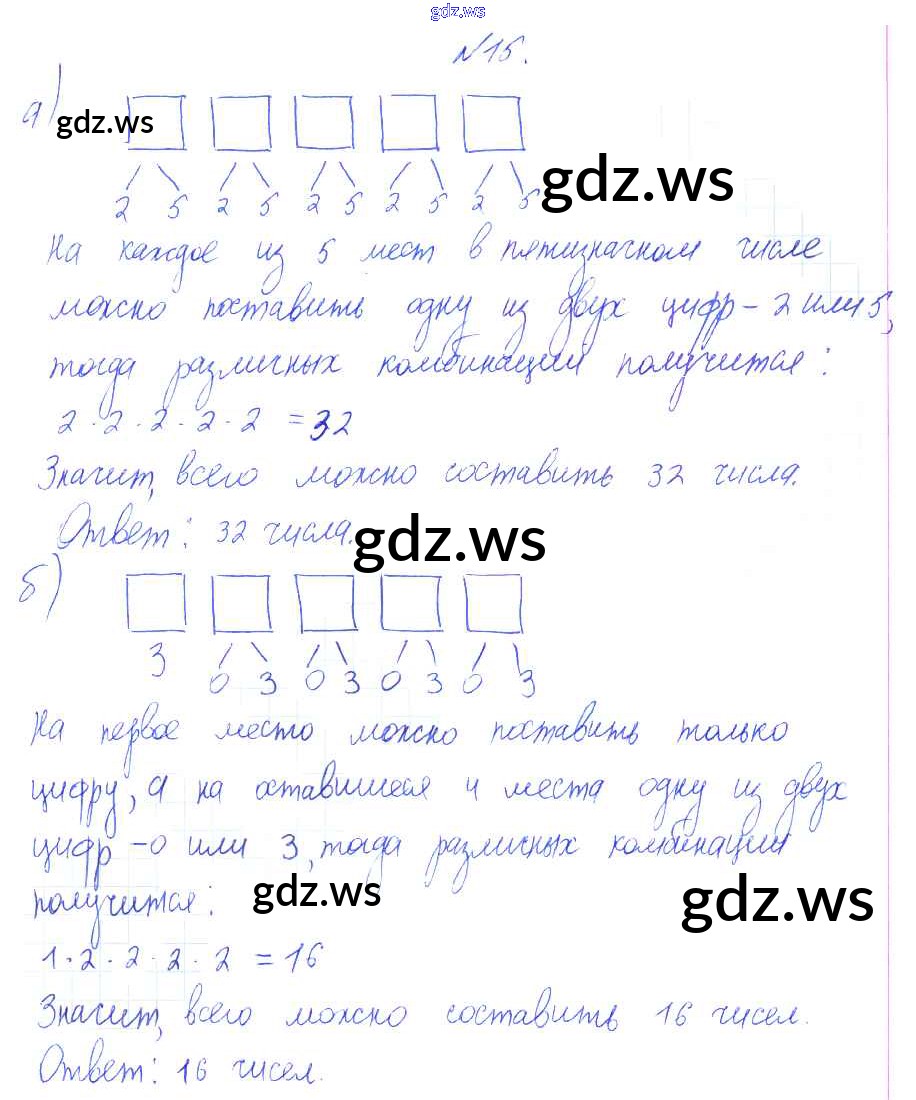 gdz.ws
№15.
а)
gdz.ws
2 5 2 5 2 5 2 5 2 5
gdz.ws
На каждое из 5 мест в пятизначном числе
можно поставить одну из двух цифр - 2 или 5,
тогда различных комбинации получится:
2 · 2 · 2 · 2 · 2 = 32
Значит, всего можно составить 32 числа.
Ответ: 32 числа.
gdz.ws
б)
3 0 3 0 3 0 3 0 3
На первое место можно поставить только
цифру, а на оставшиеся 4 места одну из двух
цифр - 0 или 3, тогда различных комбинации
получится:
gdz.ws
gdz.ws
1 · 2 · 2 · 2 · 2 = 16
Значит, всего можно составить 16 чисел.
Ответ: 16 чисел.